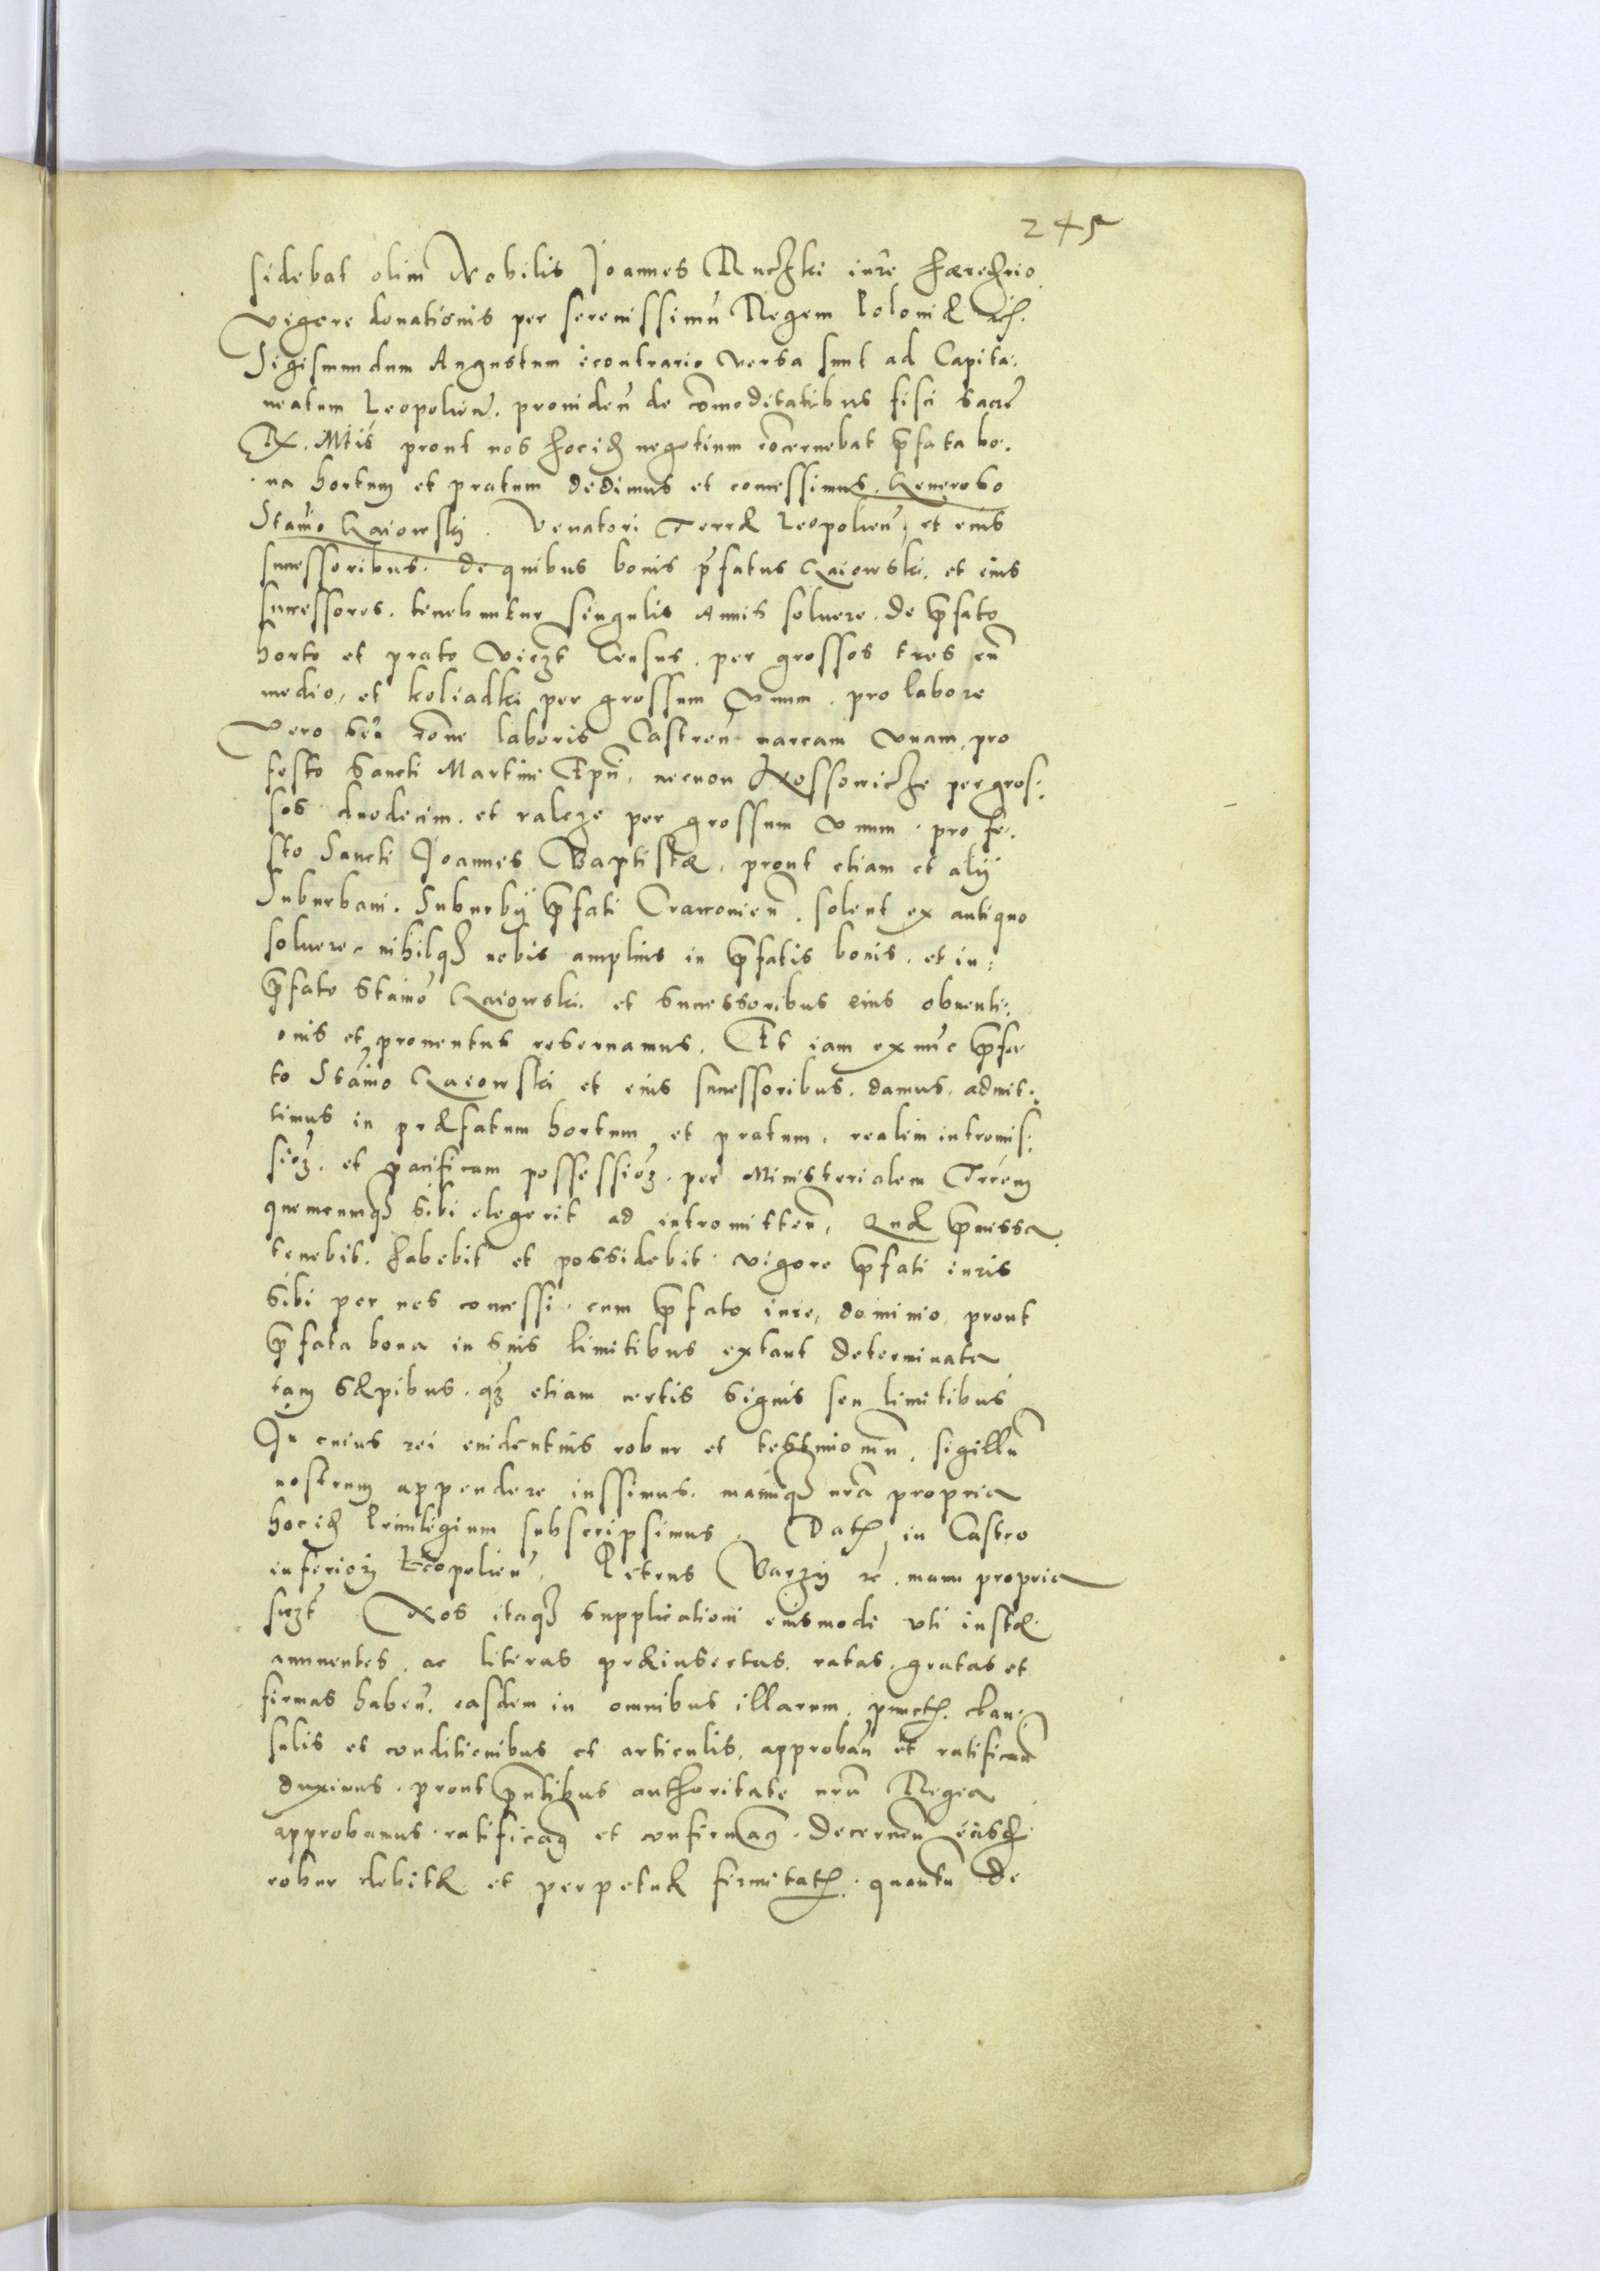 245
sidebat olim Nobilis Joannes Ruczki iure hærehrio
vigore donationis per serenissimū Regem Poloniæ etc.
Sigismundum Augustum econtrario versa sunt ad Capita:
neatum Leopolien̄. prouiden̄ de cōmoditatibus fisci sacræ
R. Mtis prout nos hociꝫ negotium cōcernebat p̄fata bo:
na hortum et pratum dedimus et concessimus. Generoso
Stan̄o Gaiowskÿ. Venatori Terræ Leopolien̄, et eius
successoribus. de quibus bonis p̄fatus Gaiowski. et eius
successores. tenebuntur singulis Annis soluere. de p̄fato
horto et prato Census. per grossos tres cū
medio, et koliadki per grossum vnum. pro labore
vero seu rōne laboris Castren̄ marcam vnam, pro
festo Sancti Martini Epī, necnon Nossowicze per gros:
sos duodecim. et raleze per grossum vnum. pro fe:
sto Sancti Joannes Baptistæ, prout etiam et alÿ
Suburbani. Suburbÿ p̄fati Cracouien̄. solent ex antiquo
soluere. nihilqꝫ nobis amplius in p̄fatis bonis. et in:
p̄fato Stan̄o Gaiowski. et successoribus eius obuenti:
onis et prouentus reseruamus. Et iam ex nūc p̄fa
to Stan̄o Gaiowski et eius successoribus. damus. admit:
timus in præfatum hortum et pratum. realem intromis:
sioꝫ. et pacificam possessioꝫ. per Ministerialem Trr̄em
quemcumqꝫ sibi elegerit ad intromitten̄, Quæ p̄missa
tenebit. habebit et possidebit vigore p̄fati iuris
sibi per nos concessi. cum p̄fato iure, dominio, prout
p̄fata bona in suis limitibus extant determinata
tam sæpibus. qꝫ etiam certis signis seu limitibus
In cuius rei euidentius robur et testimoniū, sigillū
nostrum appendere iussimus. manuqꝫ nrā propria
hociꝫ Priuilegium subscripsimus. Datꝭ in Castro
inferiori Leopolien̄, Petrus Barzÿ manu propria
sszt Nos itaqꝫ supplicationi eiusmodi vti iustæ
annuentes, ac literas præinsertas, ratas, gratas et
firmas haben̄. easdem in omnibus illarum. punctꝭ. clau:
sulis et conditionibus et articulis. approban̄ et ratifican̄
duximus. prout p̄ntibus authoritate nrā Regia
approbamus ratificamꝫ et confirmamꝫ. decernen̄ eisdꝫ
robur debitæ et perpetuæ firmitatꝭ. quantū de